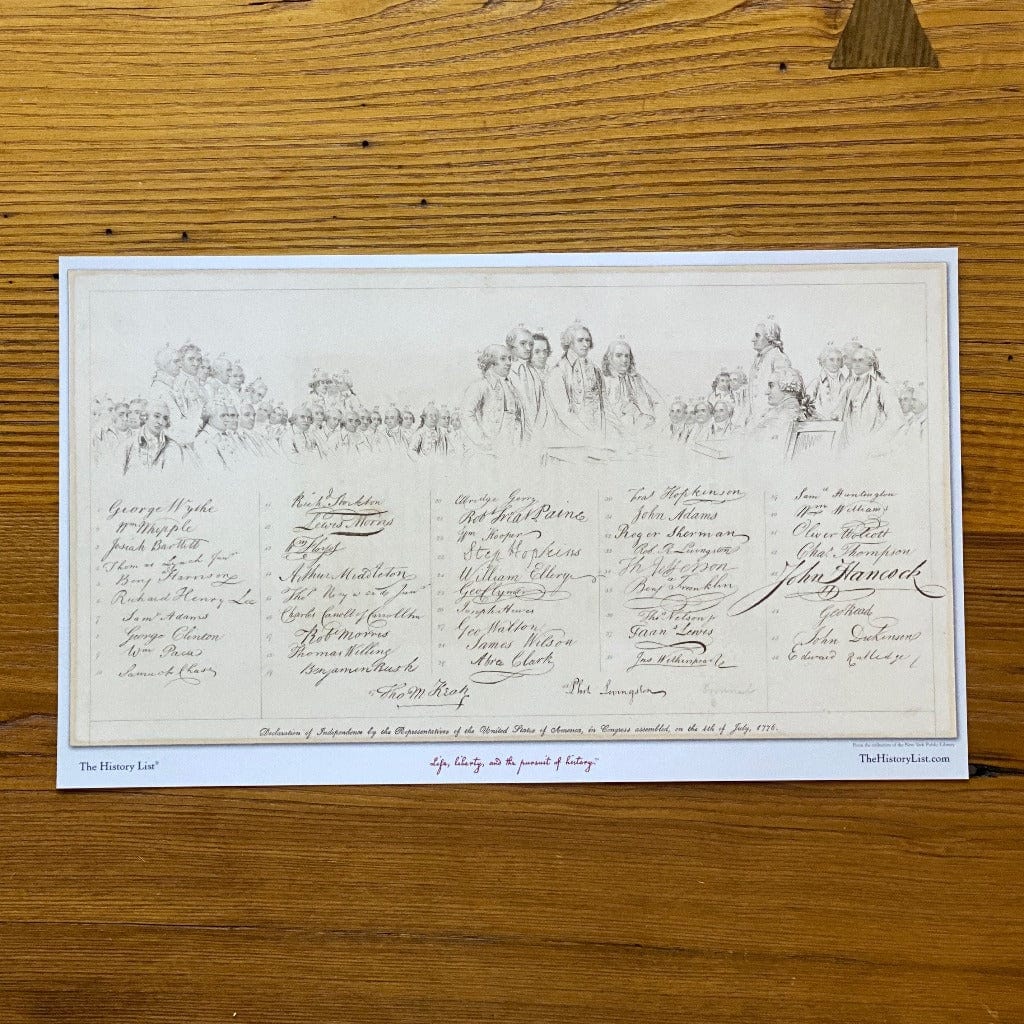 George Wythe
Wm Whipple
Josiah Bartlett
Thomas Lynch Junr
Benj Harrison
Richard Henry Lee
Saml Adams
George Clinton
Wm Paca
Samuel Chase
Richd Stockton
Lewis Morris
Wm Floyd
Arthur Middleton
Thos Heyward Junr
Charles Carroll of Carrollton
Robt Morris
Thomas Willing
Benjamin Rush
Elbridge Gerry
Robt Treat Paine
Wm Hooper
Step Hopkins
William Ellery
Geo Clymer
Joseph Hewes
Geo Walton
James Wilson
Abra Clark
Fras Hopkinson
John Adams
Roger Sherman
Rob R Livingston
Th Jefferson
Benj Franklin
Thos Nelson jr
Frans Lewis
Jno Witherspoon
Saml Huntington
Wm Williams
Oliver Wolcott
Chas Thompson
John Hancock
Geo Read
John Dickinson
Edward Rutledge
Tho M Kean
Phil Livingston
Declaration of Independence by the Representatives of the United States of America, in Congress assembled, on the 4th of July, 1776.
From the collection of the New York Public Library
The History List®
Life, liberty, and the pursuit of history.™
TheHistoryList.com